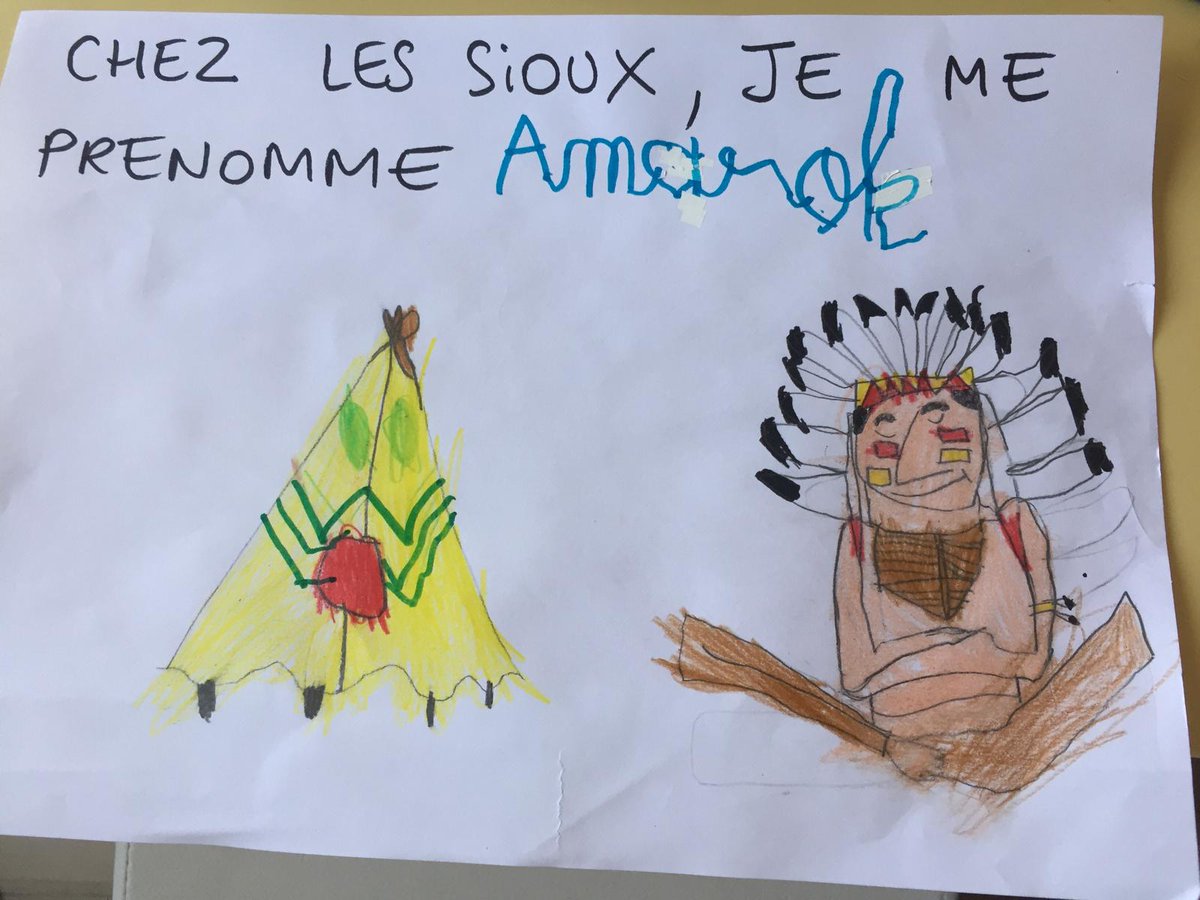 CHEZ LES SiOUX, JE ME
PRENOMME Amarok